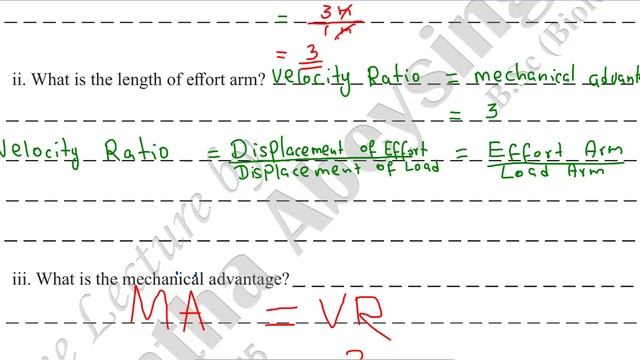 = 3N / 1N
= 3
ii. What is the length of effort arm? Velocity Ratio = mechanical advant
= 3
Velocity Ratio = Displacement of Effort / Displacement of Load = Effort Arm / Load Arm
iii. What is the mechanical advantage?
MA = VR
Lecture by
Abeysing
B.Sc (Bio